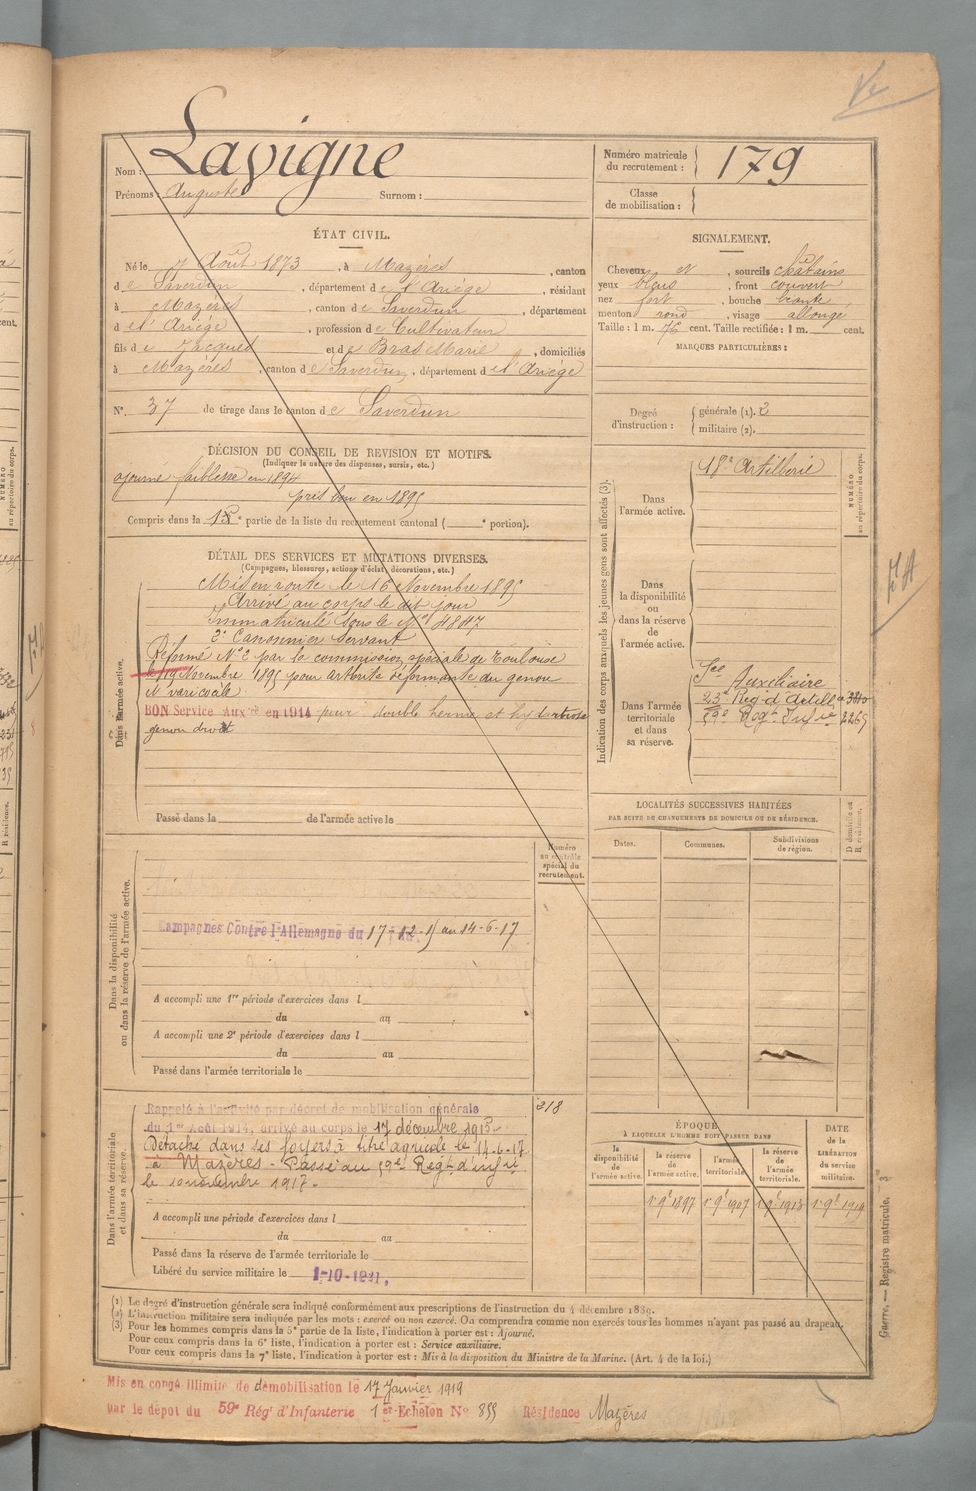 Nom : Lavigne
Prénoms : Auguste Surnom :
Numéro matricule du recrutement : 179
Classe de mobilisation :
ÉTAT CIVIL.
Né le 7 Août 1873, à Mazères, canton
de Saverdun, département de l'Ariège, résidant
à Mazères, canton de Saverdun, département
d el' Ariège, profession de Cultivateur
fils de Jacques et de Bras Marie, domiciliés
à Mazères, canton de Saverdun, département d el' Ariège
N° 37 de tirage dans le canton de Saverdun
SIGNALEMENT.
Cheveux et, sourcils châtains
yeux bleus, front couvert
nez fort, bouche béante
menton rond, visage allongé
Taille : 1 m. 76 cent. Taille rectifiée : 1 m. cent.
MARQUES PARTICULIÈRES :
Degré d'instruction : générale (1). 2
militaire (2).
DÉCISION DU CONSEIL DE REVISION ET MOTIFS.
(Indiquer la nature des dispenses, sursis, etc.)
ajourné faiblesse en 1894
pris bon en 1895
Compris dans la partie de la liste du recrutement cantonal ( e portion).
DÉTAIL DES SERVICES ET MUTATIONS DIVERSES.
(Campagnes, blessures, actions d'éclat, décorations, etc.)
Dans l'armée active.
Mis en route le 16 Novembre 1895
Arrivé au corps le dit jour
Immatriculé sous le N° 4847
2e Canonnier Servant
Réformé N° 2 par la commission spéciale de Toulouse
le 19 Novembre 1895 pour arthrite déformante du genou
et varicocèle
BON Service Auxre en 1914 pour double hernie et hydarthrose
genou droit
Passé dans la de l'armée active le
Dans la disponibilité ou dans la réserve de l'armée active.
Numéro au contrôle spécial du recrutement.
Campagnes Contre l'Allemagne du 17-12-15 au 14-6-17
A accompli une 1re période d'exercices dans l
du au
A accompli une 2e période d'exercices dans l
du au
Passé dans l'armée territoriale le
Dans l'armée territoriale et dans sa réserve.
218
Rappelé à l'activité par décret de mobilisation générale
du 1er Août 1914, arrivé au corps le 17 décembre 1915.
Détaché dans ses foyers à titre agricole le 14-6-17
à Mazères - Passé au 59e Regt d'infie
le 10 novembre 1917.
A accompli une période d'exercices dans l
du au
Passé dans la réserve de l'armée territoriale le
Libéré du service militaire le 1-10-1921.
Indication des corps auxquels les jeunes gens sont affectés (3).
NUMÉRO au répertoire du corps.
Dans l'armée active.
18e Artillerie
Dans la disponibilité ou dans la réserve de l'armée active.
Dans l'armée territoriale et dans sa réserve.
Sce Auxiliaire
23e Reg d'Artill
59e Regt Infie 2265
LOCALITÉS SUCCESSIVES HABITÉES
PAR SUITE DE CHANGEMENTS DE DOMICILE OU DE RÉSIDENCE.
Dates. Communes. Subdivisions de région. D domicile ou R résidence.
ÉPOQUE
À LAQUELLE L'HOMME DOIT PASSER DANS
la disponibilité de l'armée active.
la réserve de l'armée active.
l'armée territoriale.
la réserve de l'armée territoriale.
DATE de la LIBÉRATION du service militaire.
1er 9e 1897 1er 9e 1907 1er 9e 1913 1er 9e 1919
(1) Le degré d'instruction générale sera indiqué conformément aux prescriptions de l'instruction du 4 décembre 1889.
(2) L'instruction militaire sera indiquée par les mots : exercé ou non exercé. On comprendra comme non exercés tous les hommes n'ayant pas passé au drapeau.
(3) Pour les hommes compris dans la 5e partie de la liste, l'indication à porter est : Ajourné.
Pour ceux compris dans la 6e liste, l'indication à porter est : Service auxiliaire.
Pour ceux compris dans la 7e liste, l'indication à porter est : Mis à la disposition du Ministre de la Marine. (Art. 4 de la loi.)
Guerre. — Registre matricule. 3
Mis en congé illimité de démobilisation le 17 Janvier 1919
par le dépot du 59e Régt d'Infanterie 1er Echelon N° 855 Résidence Mazères